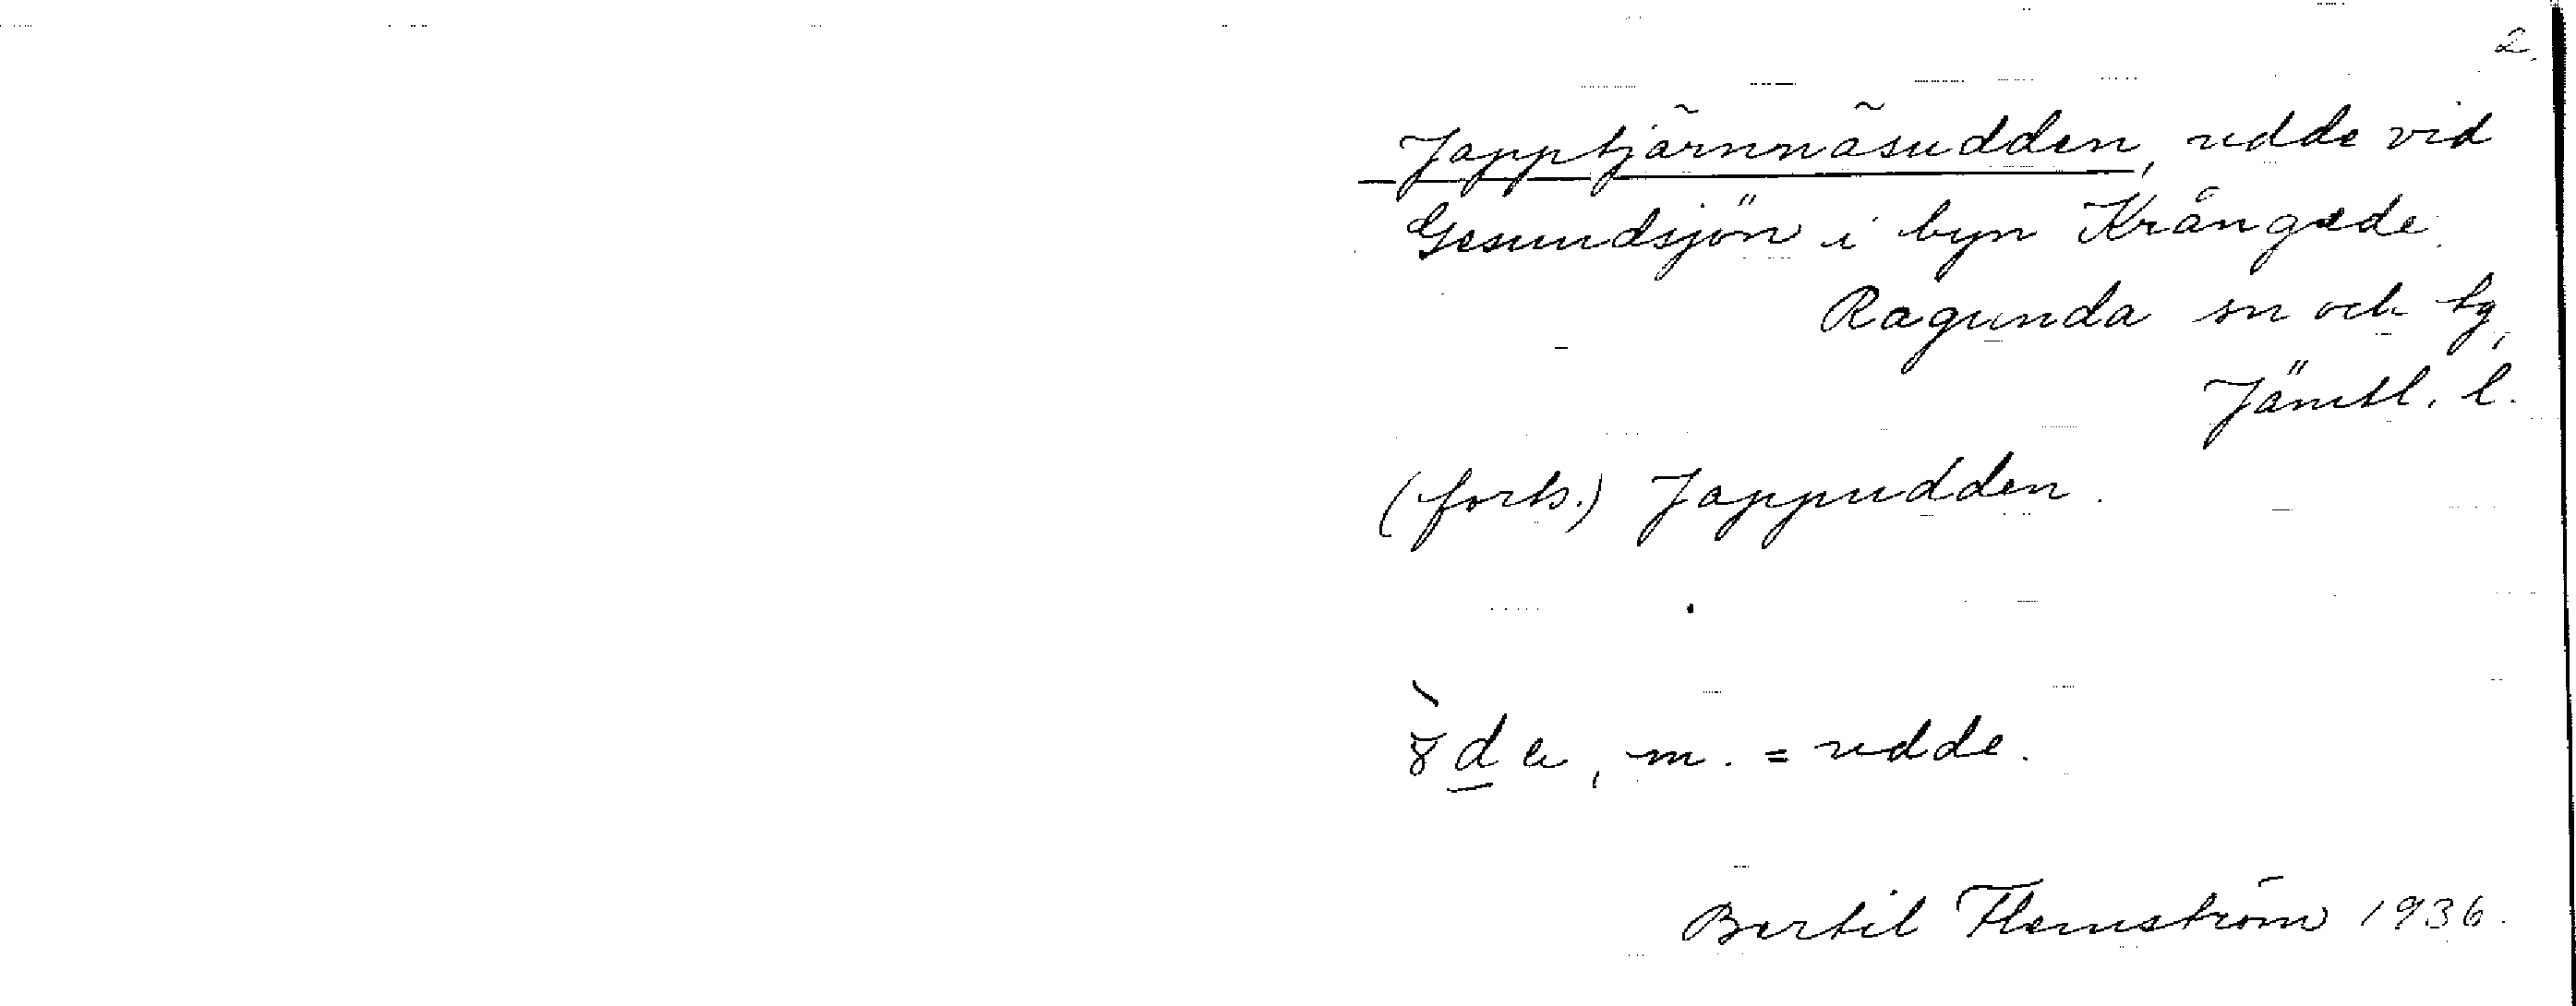 2.
Japptjärnnäsudden, udde vid
Gesundsjön i byn Krångede.
Ragunda sn och tg,
Jämtl. l.
(forts.) Jappudden.
m. = udde.
Bertil Flemström 1936.